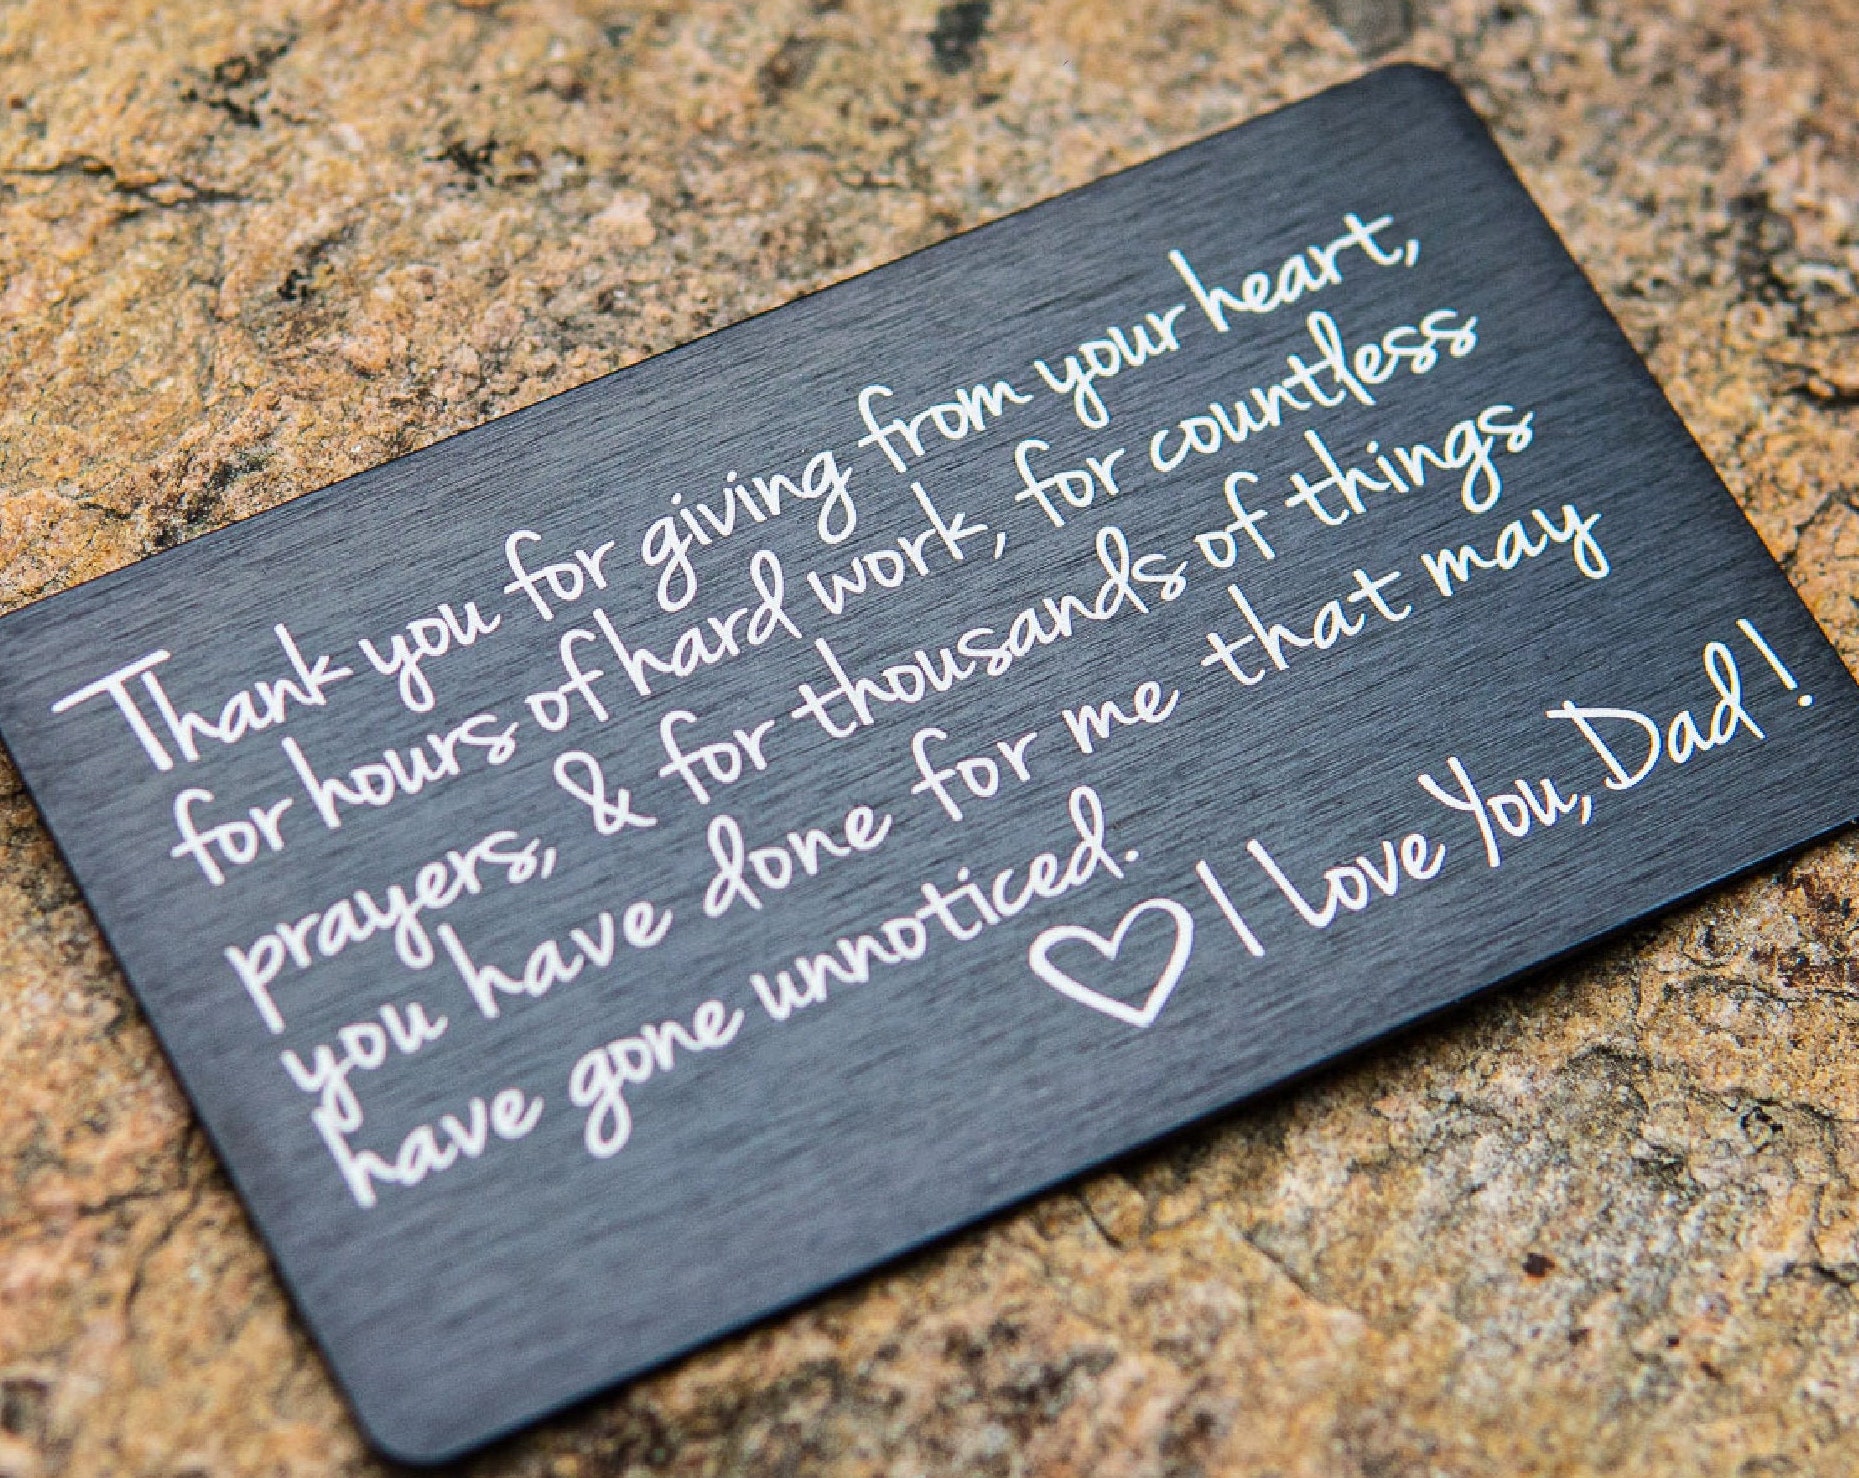 Thank you for giving from your heart,
for hours of hard work, for countless
prayers, & for thousands of things
you have done for me that may
have gone unnoticed.
I Love You, Dad!